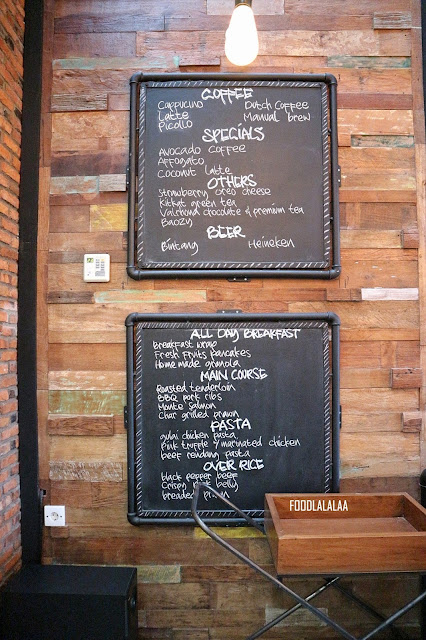 COFFEE
Cappucino Dutch Coffee
Latte Manual brew
Picollo
SPECIALS
Avocado coffee
Affogato
Coconut latte
OTHERS
Strawberry oreo cheese
Kitkat green tea
Valrhona chocolate & premium tea
Baozy
BEER
Bintang Heineken
ALL DAY BREAKFAST
Breakfast wrap
Fresh Fruits Pancakes
Home made granola
MAIN COURSE
Roasted tenderloin
BBQ pork ribs
Monte Salmon
Char grilled prawn
PASTA
gulai chicken pasta
Pink truffle & marinated chicken
beef rendang pasta
OVER RICE
black pepper beef
Crispy pork belly
breaded prawn
FOODLALALAA